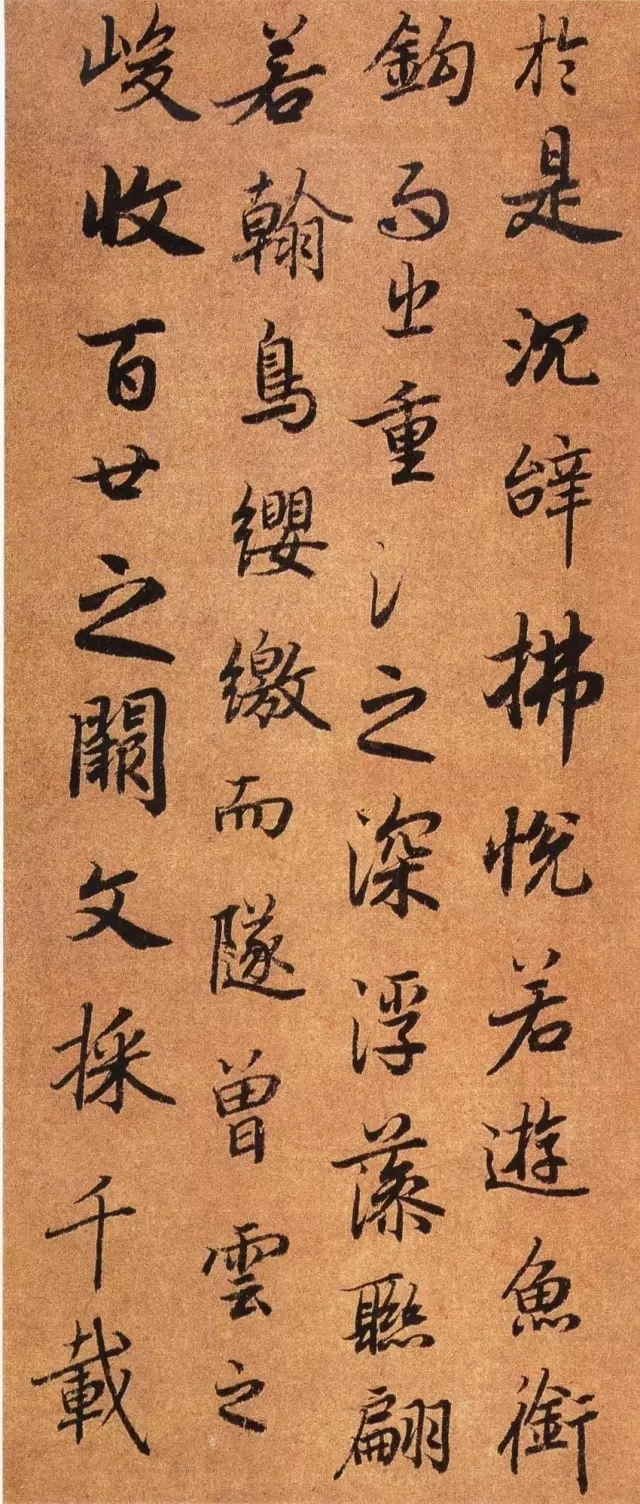 於是沉辝拂悅若遊魚銜
鈎而出重氵之深浮藻聯翩
若翰鳥纓繳而隊曾雲之
峻收百廿之闕文採千載